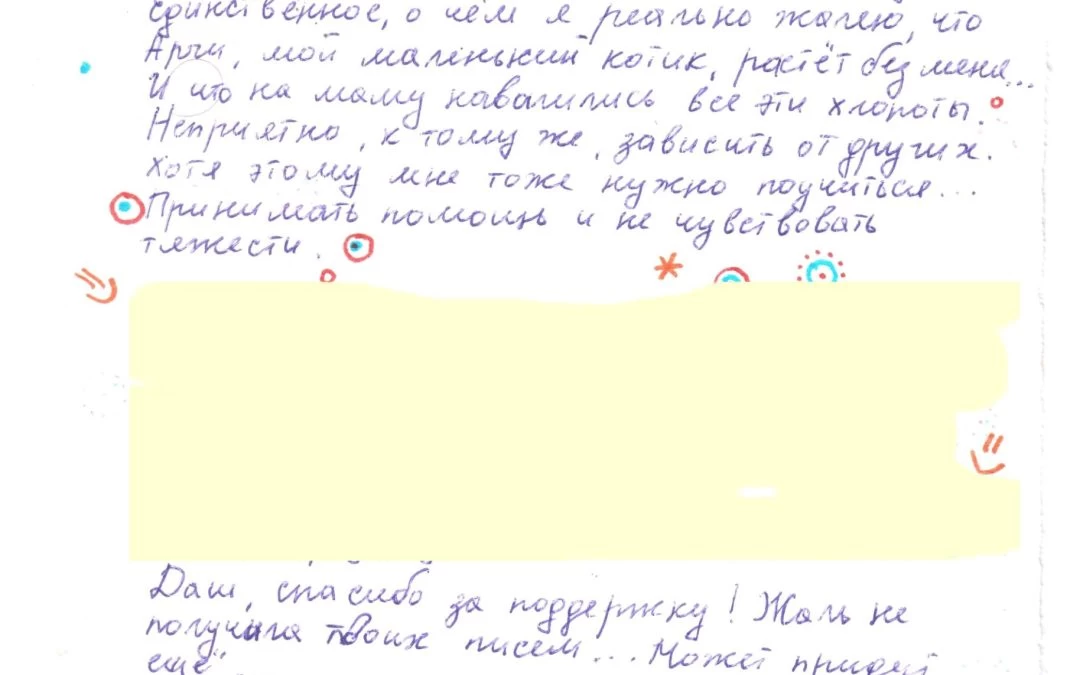 единственное, о чём я реально жалею, что
Арчи, мой маленький котик, растёт без меня...
И что на маму навалились все эти хлопоты.
Неприятно, к тому же, зависить от других.
Хотя этому мне тоже нужно поучиться...
Принимать помощь и не чувствовать
тяжести.
Даш, спасибо за поддержку! Жаль не
получила твоих писем... Может придут
ещё